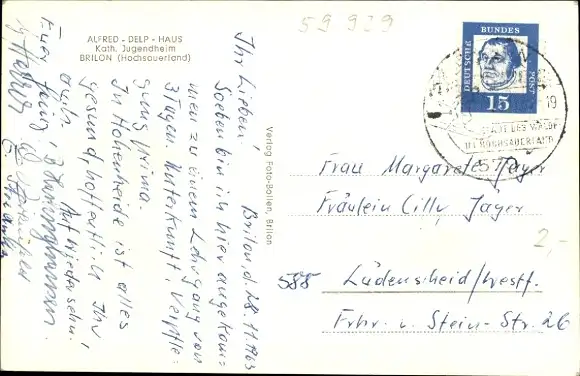 59939
ALFRED - DELP - HAUS
Kath. Jugendheim
BRILON (Hochsauerland)
Brilon d. 28.11.1963
Ihr Lieben!
Soeben bin ich hier angekom-
men zu einem Lehrgang von
3 Tagen. Unterkunft u. Verpfle-
gung prima.
In Hohenheide ist alles
gesund, hoffentlich Ihr
auch.
Auf Wiedersehn.
Euer
Verlag Foto-Ballen, Brilon
DEUTSCHE
BUNDES
POST
15
19
STADT DES WALDES
IM HOCHSAUERLAND
57
Frau Margarete Jäger
Fräulein Cilly Jäger
2,-
588 Lüdenscheid/Westf.
Frhr. v. Stein-Str. 26